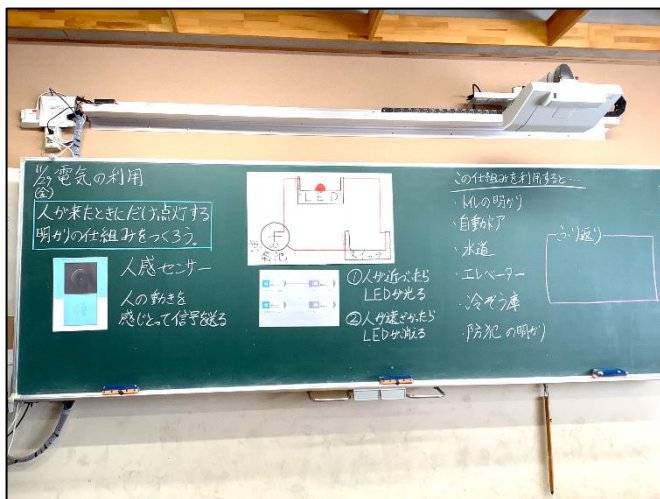 11/27
(金)
電気の利用
人が来たときにだけ点灯する
明かりの仕組みをつくろう。
人感センサー
人の動きを
感じとって信号を送る
LED
電池
スイッチ
①人が近づいたら
LEDが光る
②人が遠ざかったら
LEDが消える
この仕組みを利用すると…
・トイレの明かり
・自動ドア
・水道
・エレベーター
・冷ぞう庫
・防犯の明かり
ふり返り